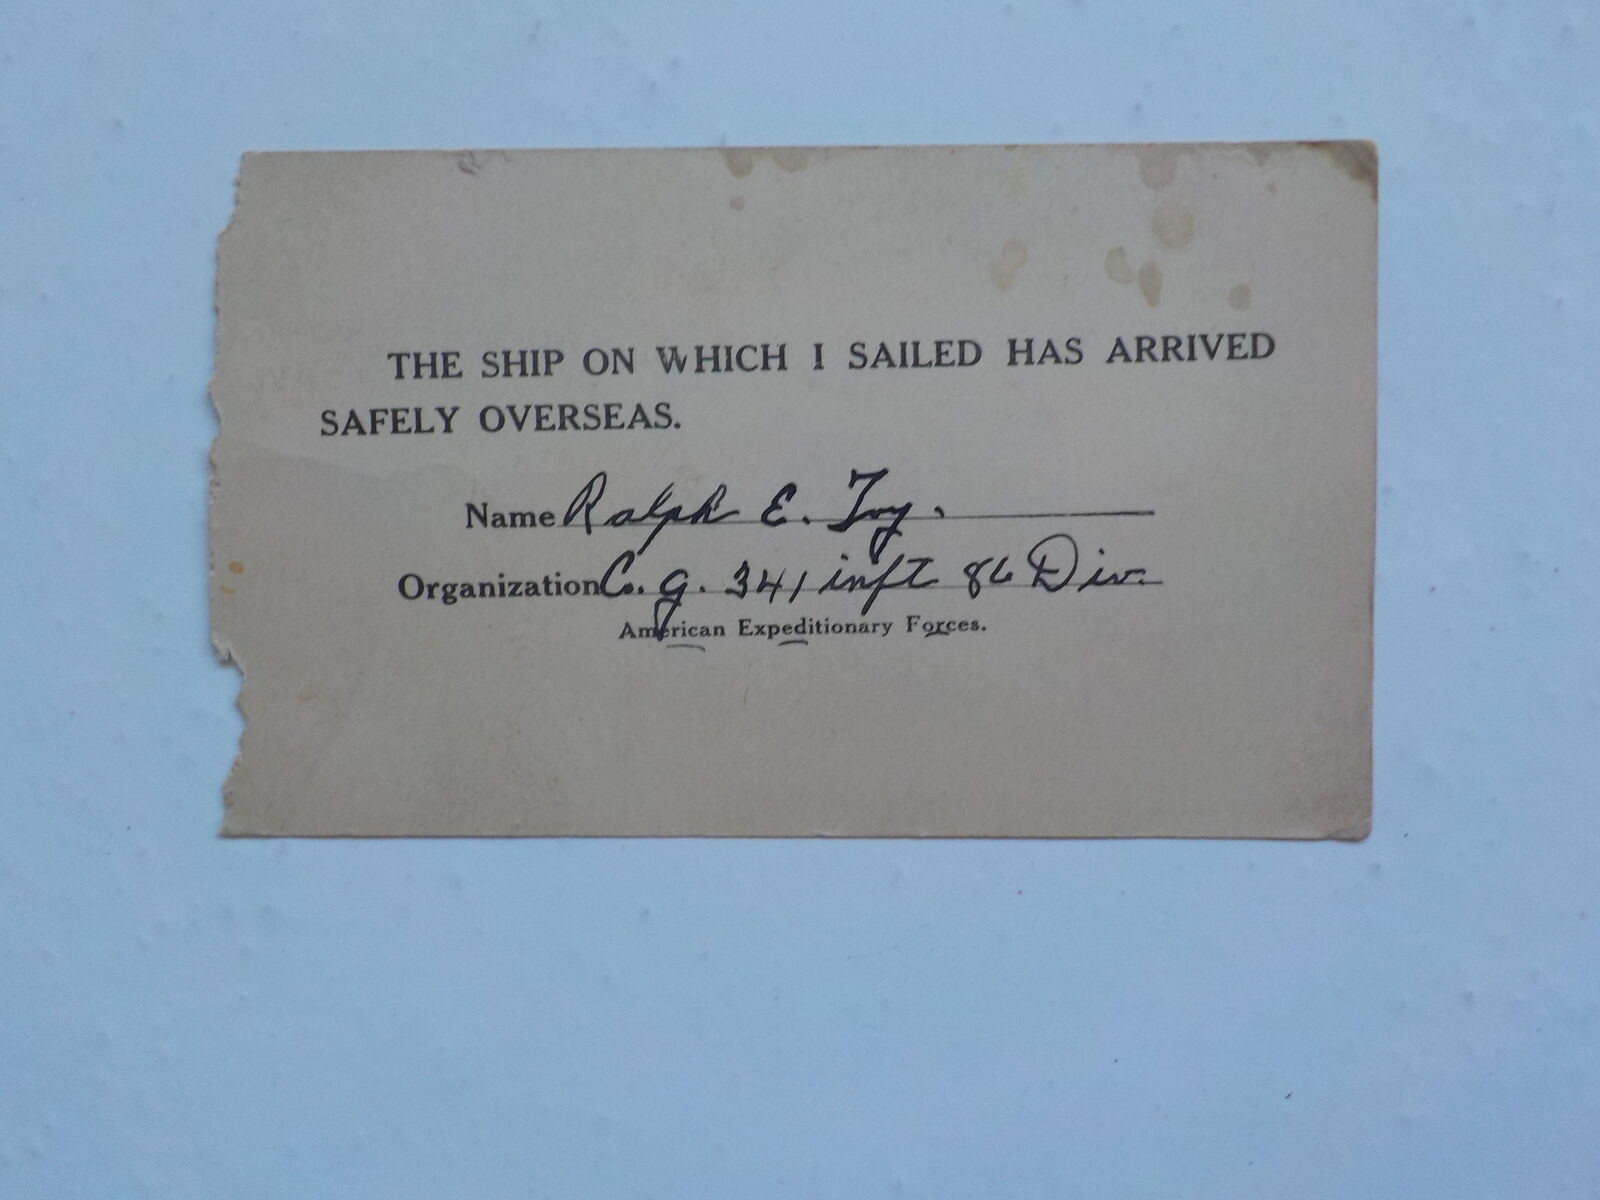 THE SHIP ON WHICH I SAILED HAS ARRIVED
SAFELY OVERSEAS.
Name Ralph E.
Organization Co. G. 341 inft 86 Div.
American Expeditionary Forces.